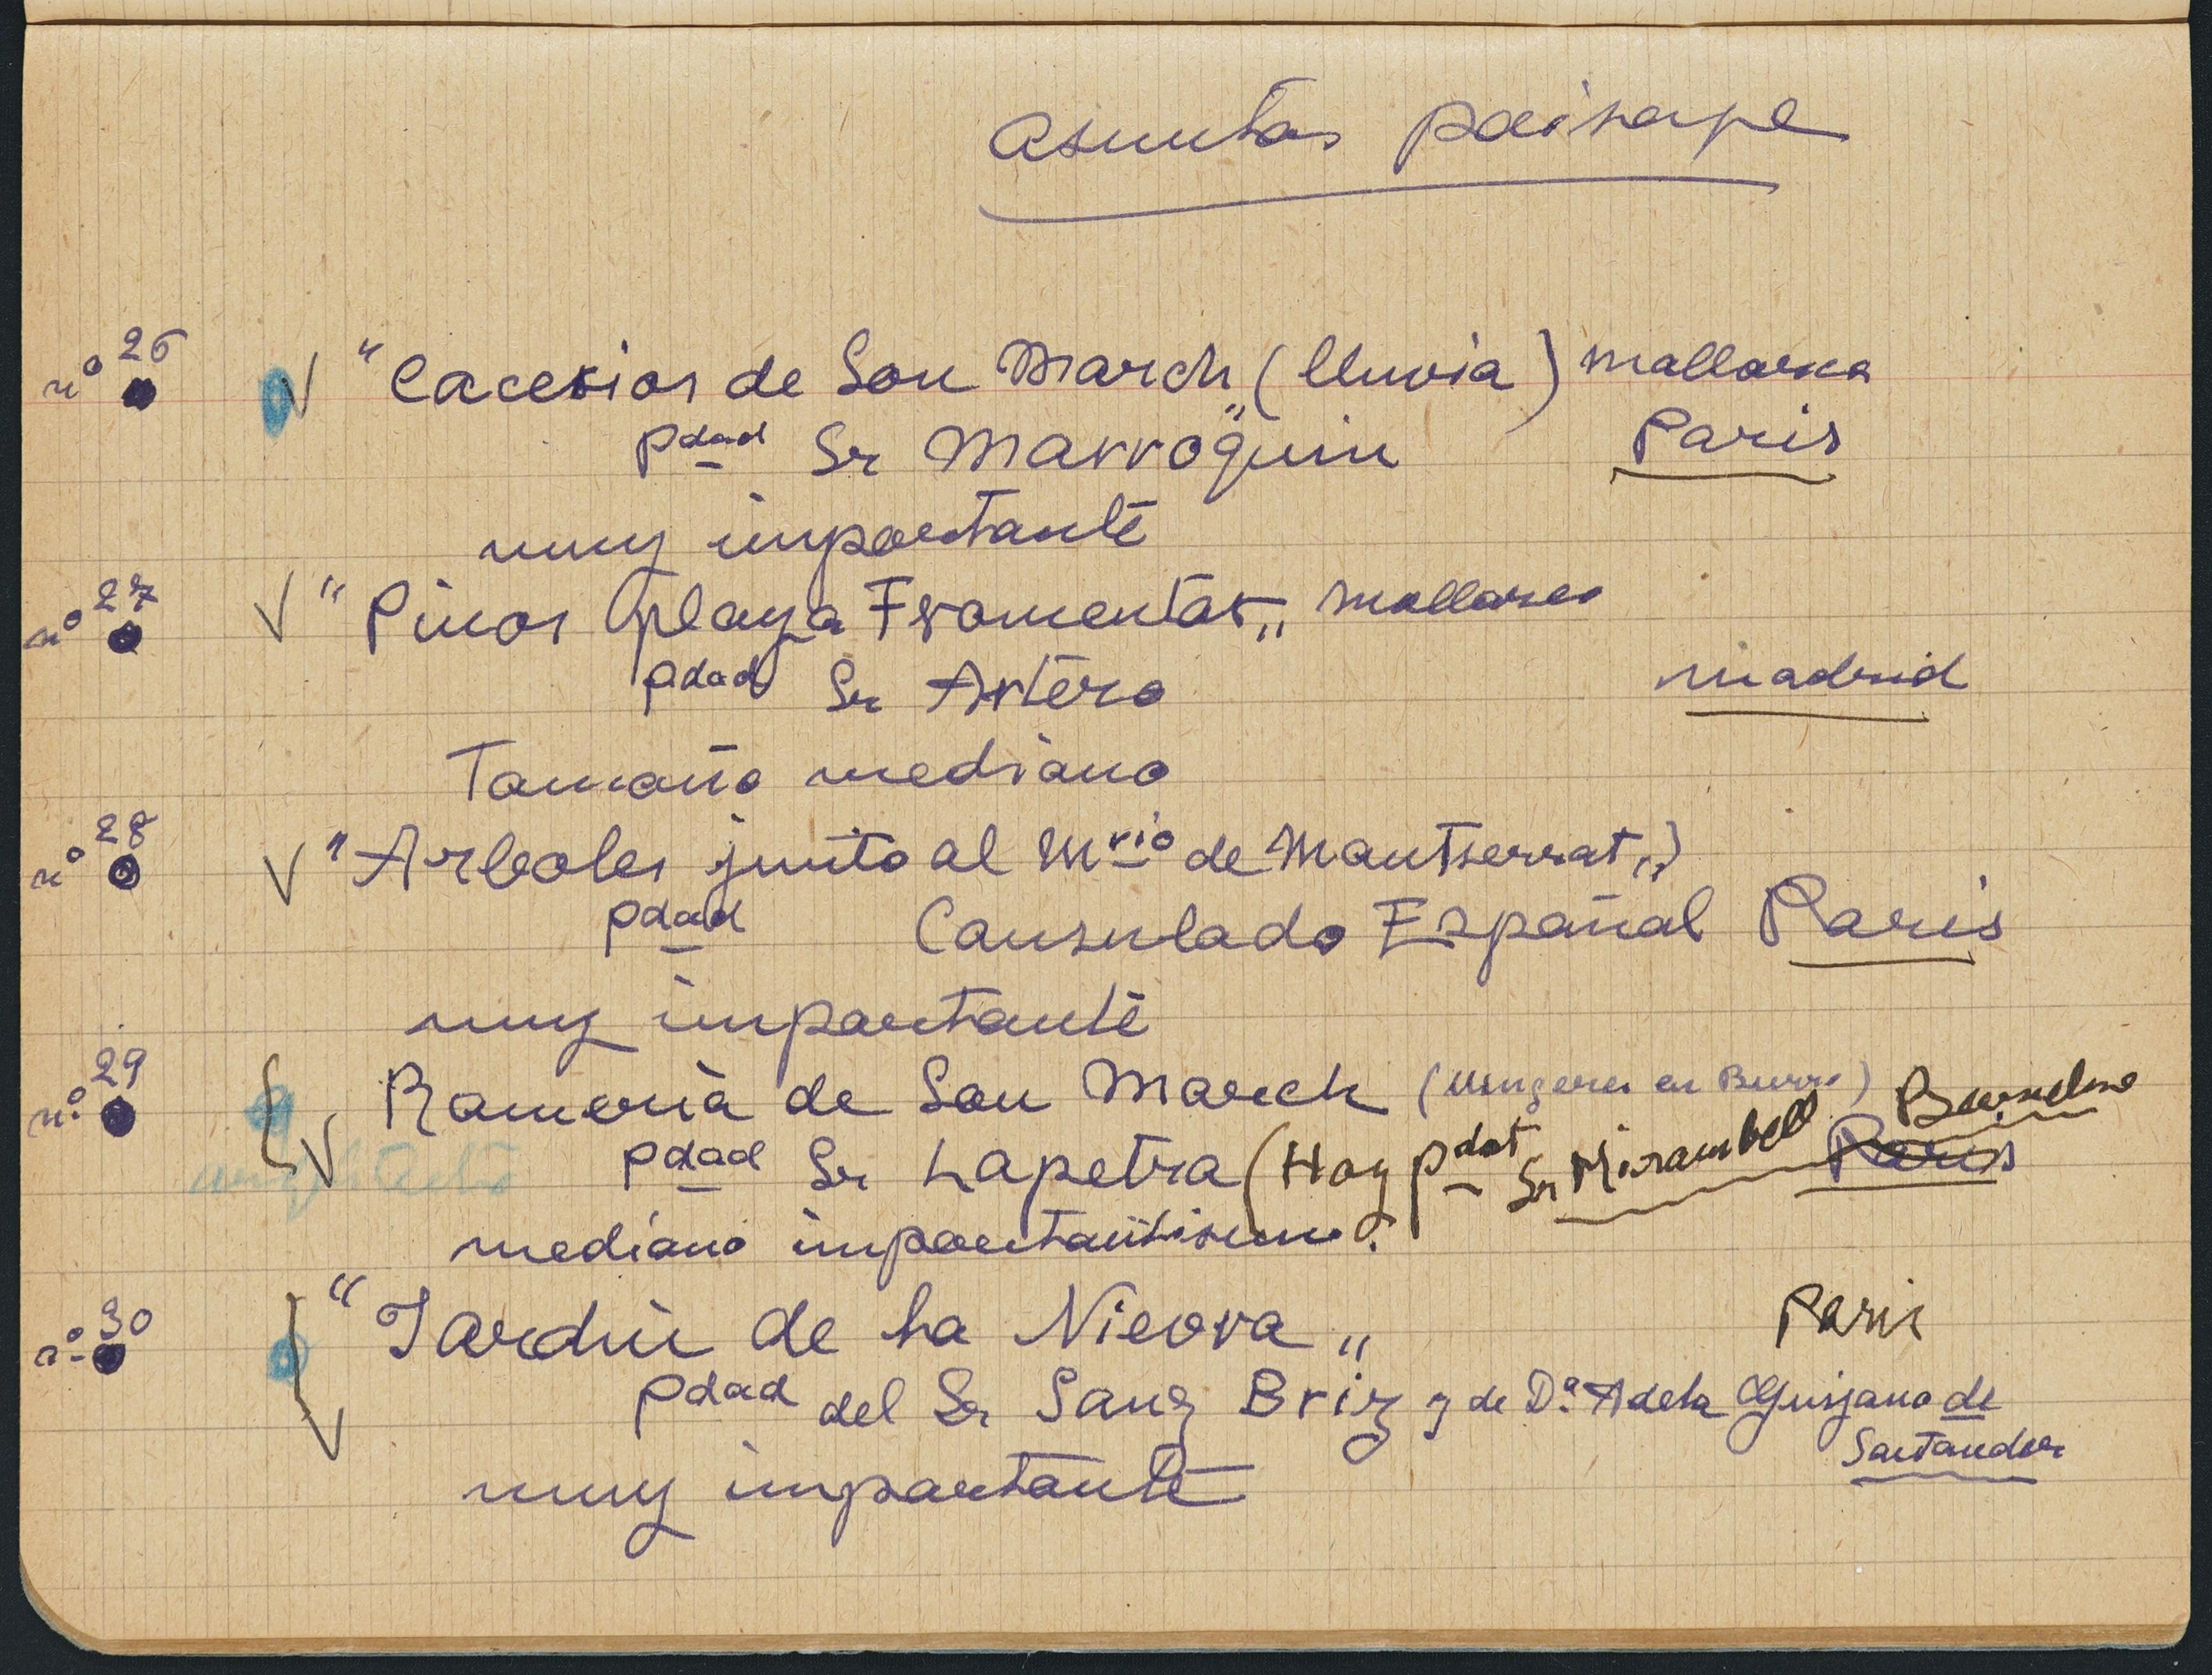 Asuntos paisaje
nº 26 V "Caserios de Son March„ (lluvia) Mallorca
pdad Sr Marroquin Paris
muy importante
nº 27 V "Pinos playa Fromentor„ Mallorca
pdad Sr Artero Madrid
Tamaño mediano
nº 28 V "Arboles junto al Mrio de Montserrat„
pdad Consulado Español Paris
muy importante
nº 29 V Ramoria de Son March (Mugeres en Burro) Barcelona
pdad Sr Lapetra (Hoy pdat Sr Mirambell Paris
mediano importantisimo
nº 30 V "Jardin de la Nieova„ Paris
pdad del Sr Sanz Briz y de Dª Adela Quijano de
Santander
muy importante